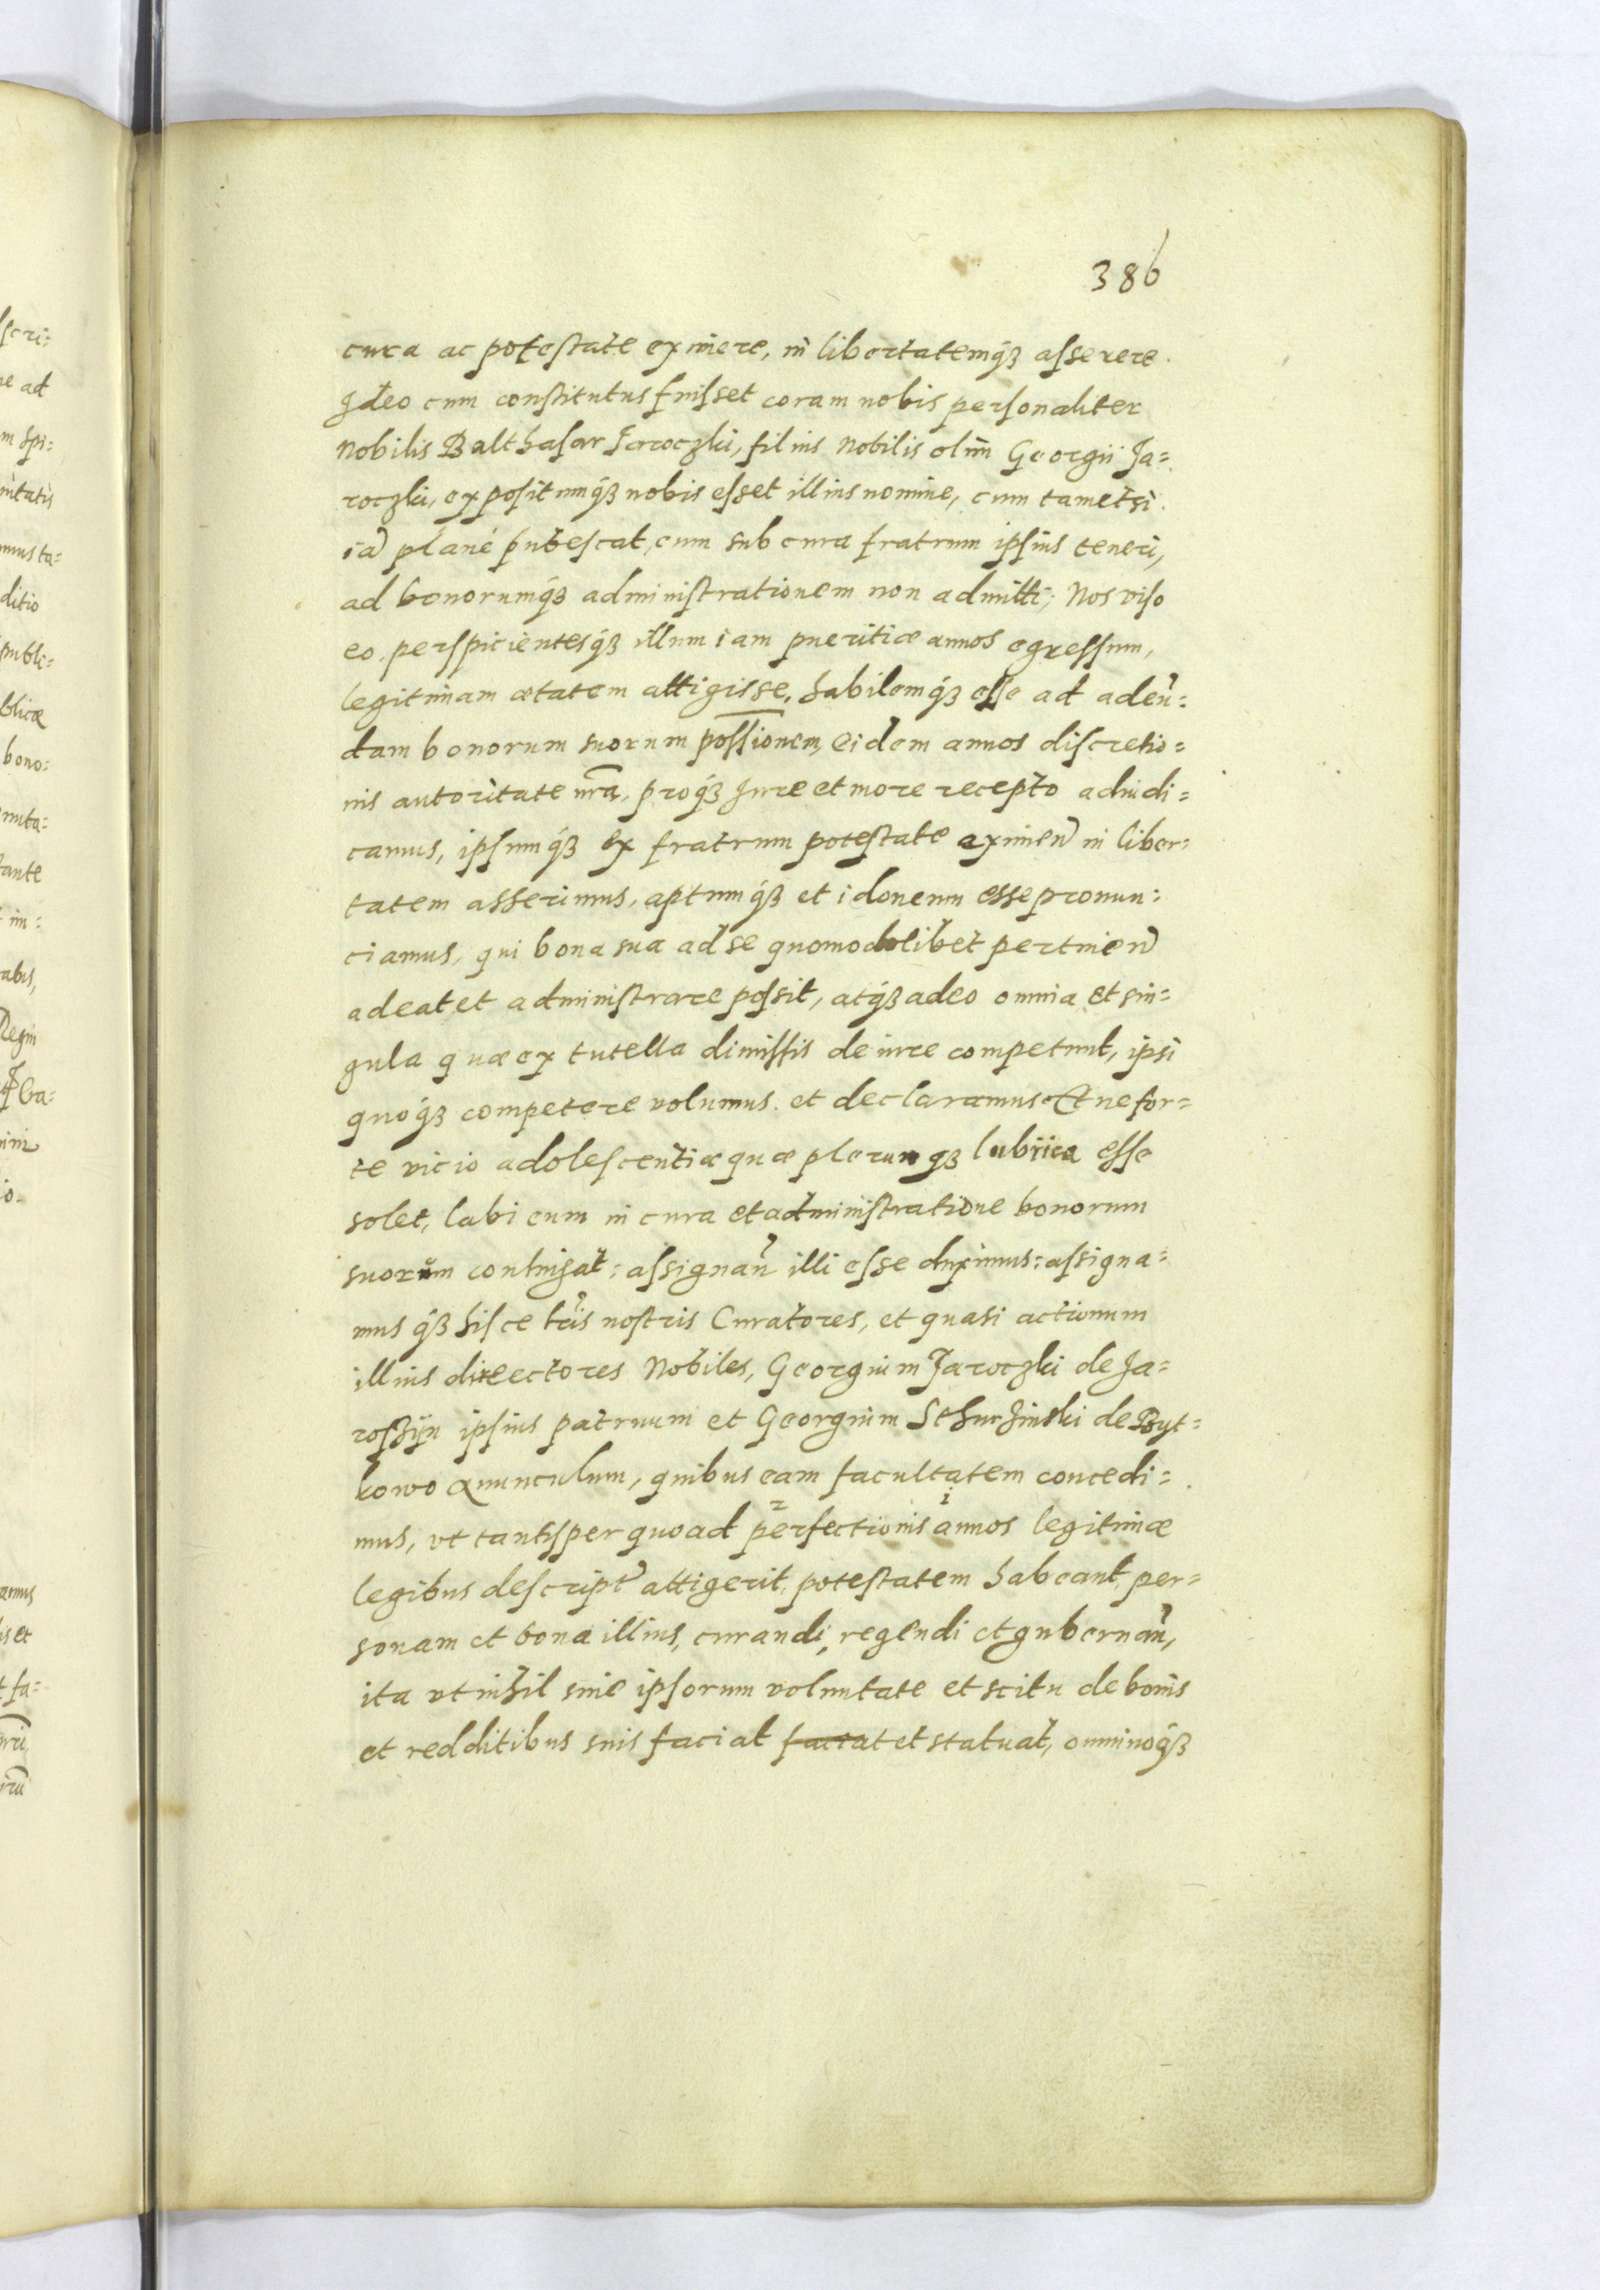 386
cura ac potestate eximere, in libertatemq́ꝫ asserere.
Ideo cum constitutus fuisset coram nobis personaliter
Nobilis Balthasar Jaroczki, filius Nobilis olim Georgii Ja=
roczki, expositumq́ꝫ nobis esset illius nomine, eum tametsi
iã planè pubescat, eum sub cura fratrum ipsius teneri,
ad bonorumq́ꝫ administrationem non admitti; Nos viso
eo. perspicientesq́ꝫ illum iam pueritiæ annos egressum,
legitimam ætatem attigisse, habilemq́ꝫ esse ad adeun̄=
dam bonorum suorum possionem, eidem annos discretio=
nis autoritate nr̃a, proq́ꝫ Jure et more recepto adiudi=
camus, ipsumq́ꝫ ex fratrum potestate eximen̄ in liber=
tatem asserimus, aptumq́ꝫ et idoneum esse pronun=
ciamus, qui bona sua ad se quomodolibet pertinen̄
adeat et administrare possit, atq́ꝫ adeo omnia et sin=
gula quæ ex tutella dimissis de iure competunt, ipsi
quoq́ꝫ competere volumus et declaramus. Et ne for=
te vicio adolescentiæ quæ plerunqꝫ lubrica esse
solet, labi eum in cura et administratione bonorum
suorum contingat: assignan̄ illi esse duximus: assigna=
musq́ꝫ hisce lr̃is nostris Curatores, et quasi actionum
illius directores Nobiles, Georgium Jaroczki de Ja=
roszijn ipsius patruum et Georgium Schurzinski de Byt=
kowo avunculum, quibus eam facultatem concedi=
mus, vt tantisper quoad perfectionis annos legitimæ
legibus descript̄ attigerit, potestatem habeant, per=
sonam et bona illius, curandi, regendi et gubernan̄,
ita vt nihil sine ipsorum voluntate et scitu de bonis
et redditibus suis faciat faciat et statuat, omninoq́ꝫ